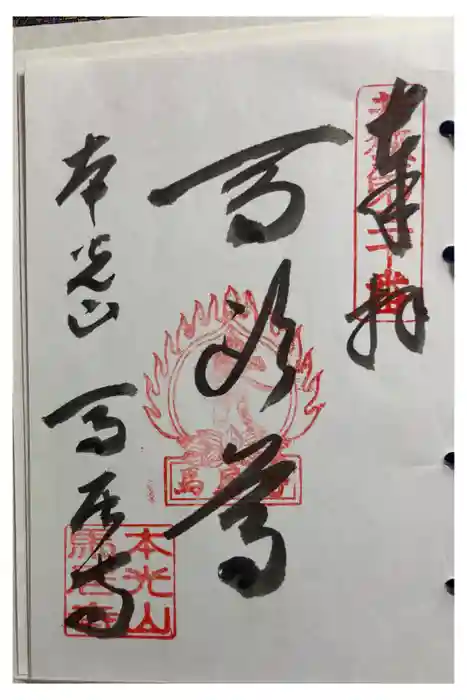 奉拝
馬頭尊
馬居寺
本光山 馬居寺
本光山
馬居寺